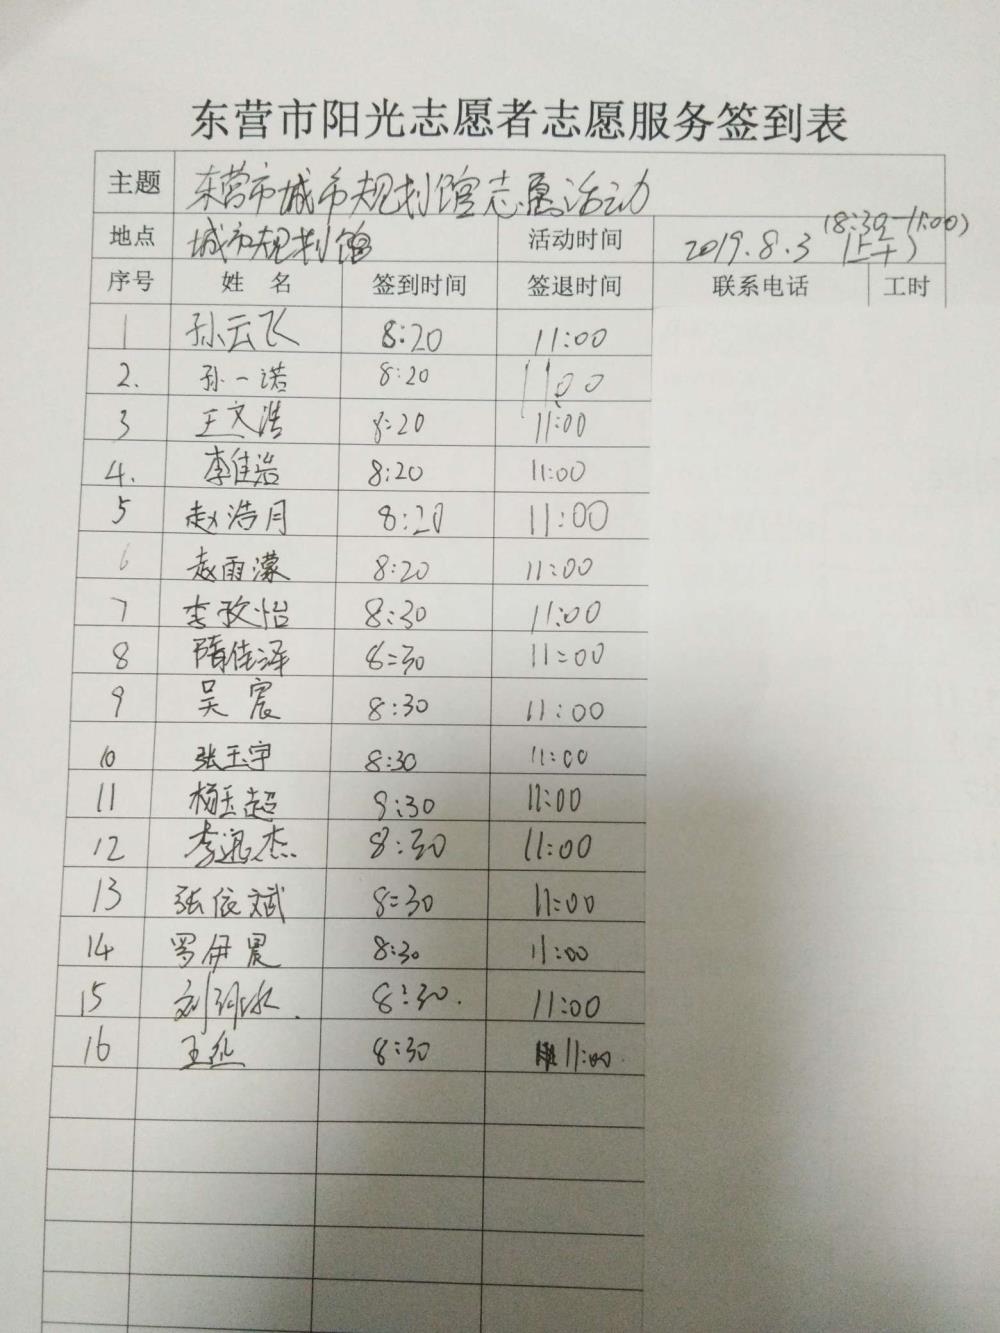 东营市阳光志愿者志愿服务签到表
主题 东营市城市规划馆志愿活动
地点 城市规划馆 活动时间 2019.8.3 (8:30-11:00) (上午)
序号 姓名 签到时间 签退时间 联系电话 工时
1 孙云飞 8:20 11:00
2. 孙一诺 8:20 11:00
3 王文浩 8:20 11:00
4. 李佳浩 8:20 11:00
5 赵浩月 8:20 11:00
6 赵雨濛 8:20 11:00
7 李政怡 8:30 11:00
8 隋佳泽 8:30 11:00
9 吴宸 8:30 11:00
10 张玉宇 8:30 11:00
11 杨玉超 8:30 11:00
12 李 杰 8:30 11:00
13 张依斌 8:30 11:00
14 罗伊晨 8:30 11:00
15 刘 8:30. 11:00
16 王 8:30 11:00